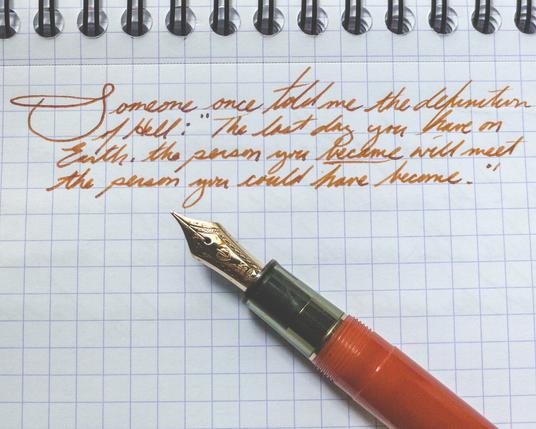 Someone once told me the definition
of Hell: "The last day you have on
Earth, the person you became will meet
the person you could have become."